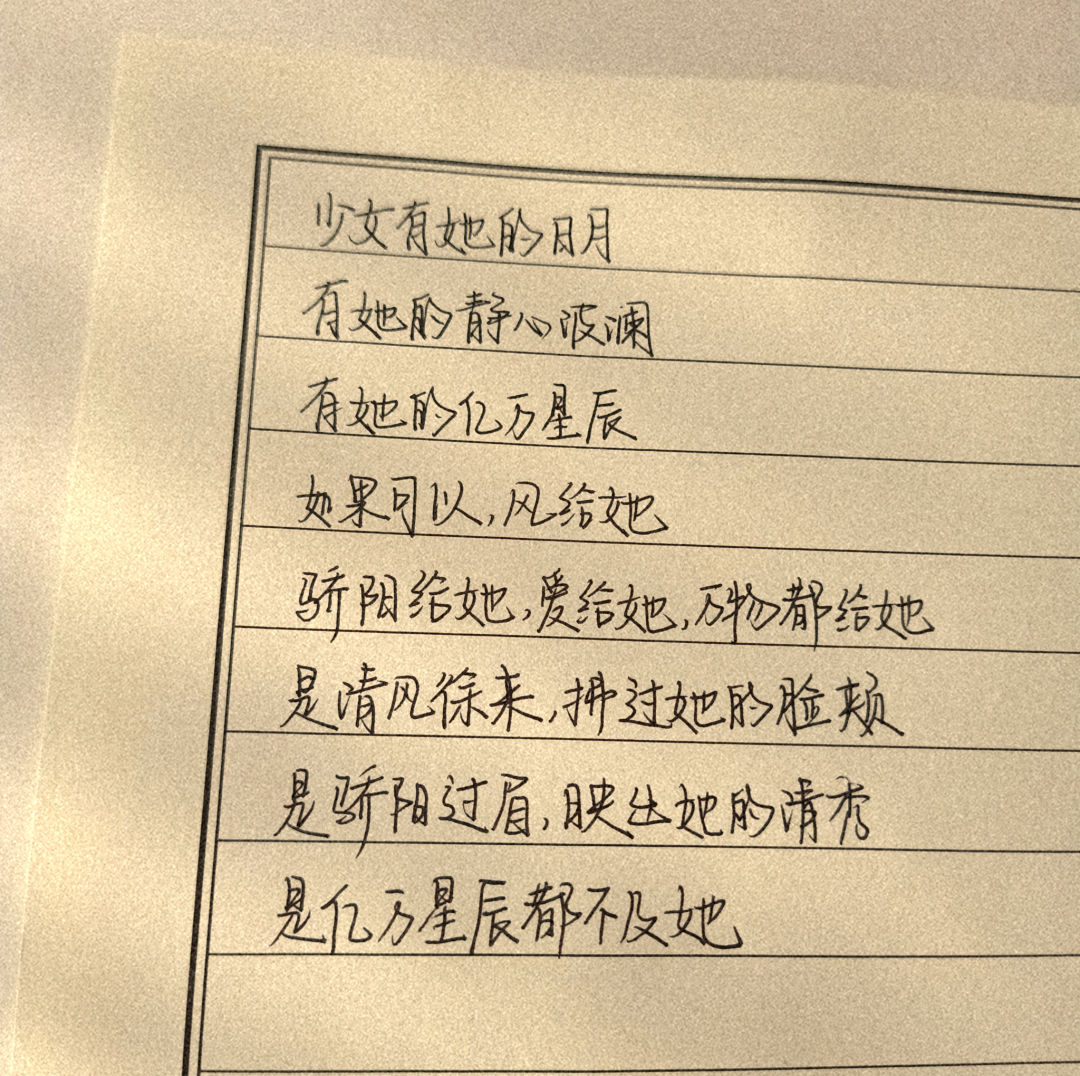 少女有她的日月
有她的静心波澜
有她的亿万星辰
如果可以,风给她
骄阳给她,爱给她,万物都给她
是清风徐来,拂过她的脸颊
是骄阳过眉,映出她的清秀
是亿万星辰都不及她